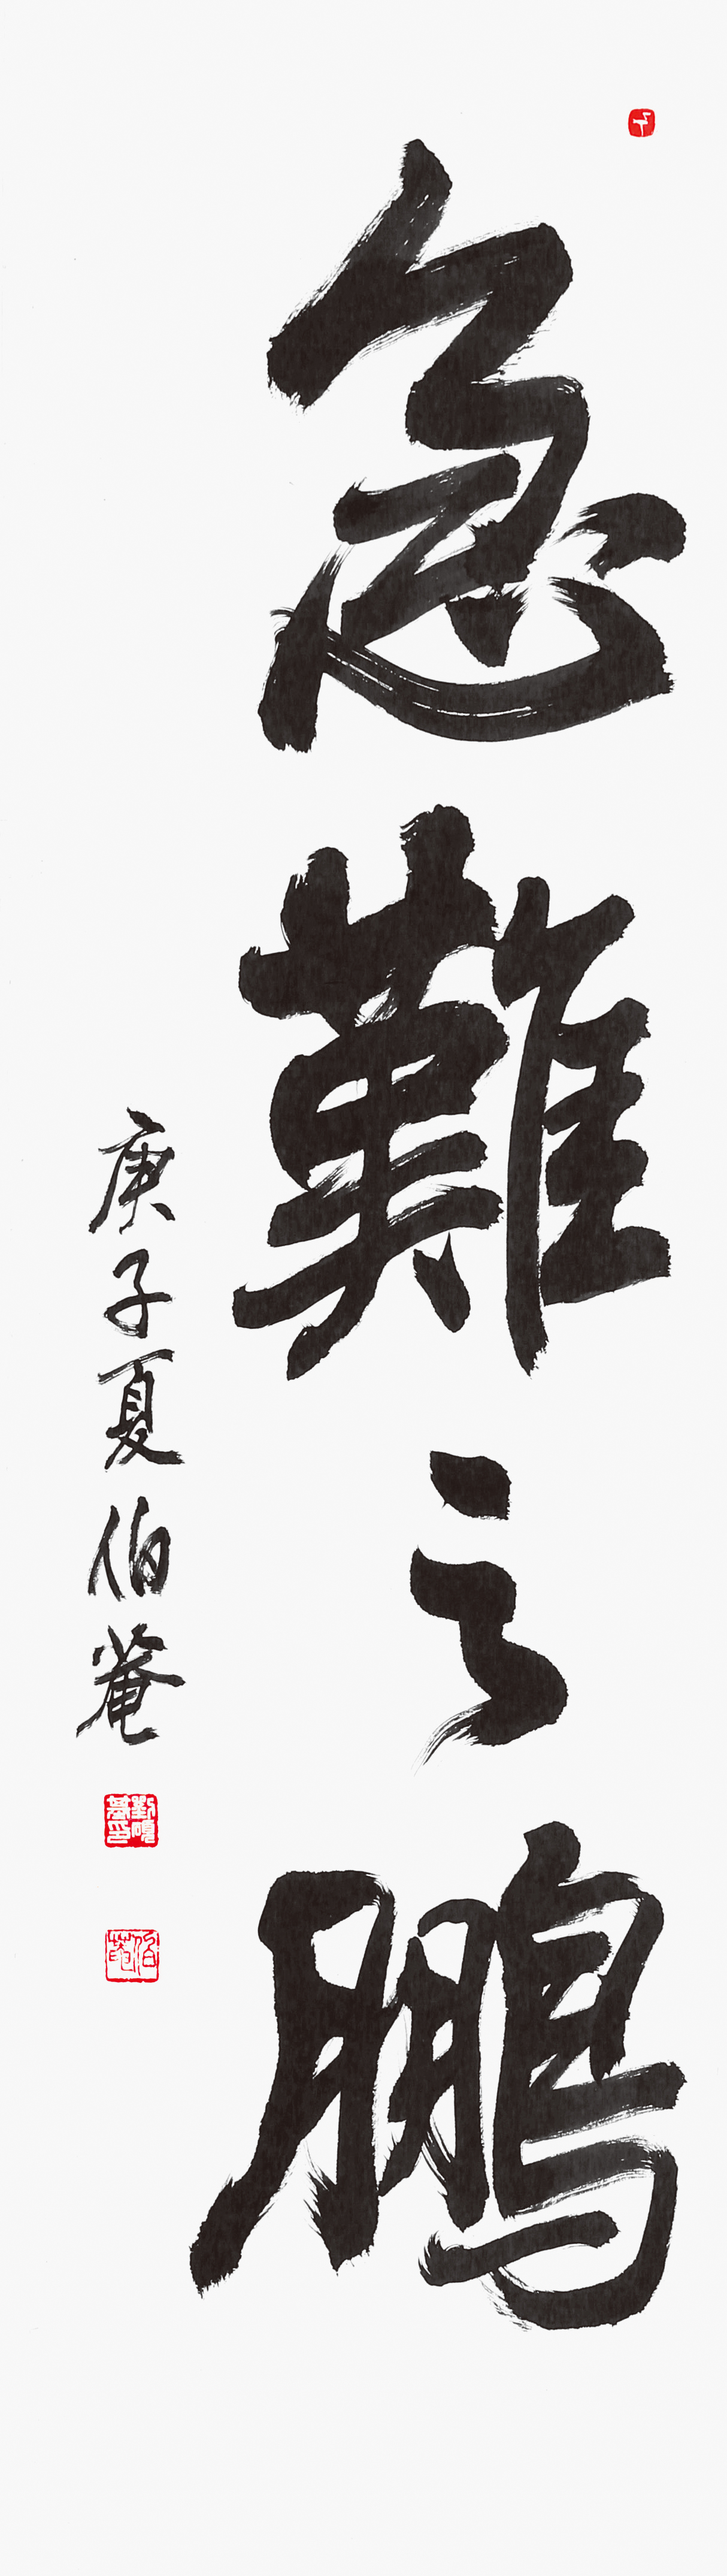 急難之鵬
庚子夏伯菴